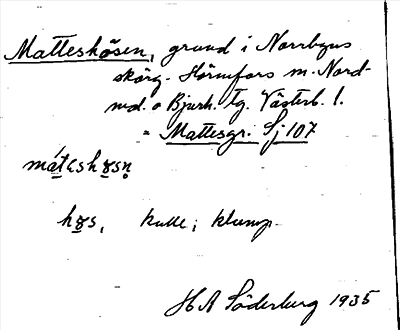 Matteshösen, grund i Norrbyns
skärg. Hörnefors m. Nord-
md. o Bjurh. tg. Västerb. l.
= Mattesgr. Sj 107
hɤs, kulle; klump.
H A Söderberg 1935